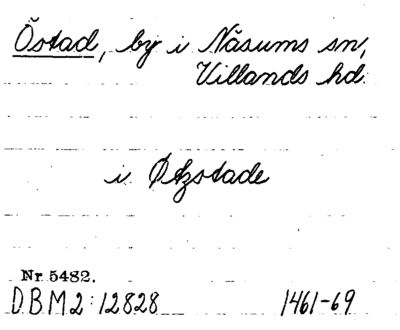 Östad, by i Näsums sn,
Villands hd.
i Øtzstade
Nr 5482.
DBM2:12828 1461-69